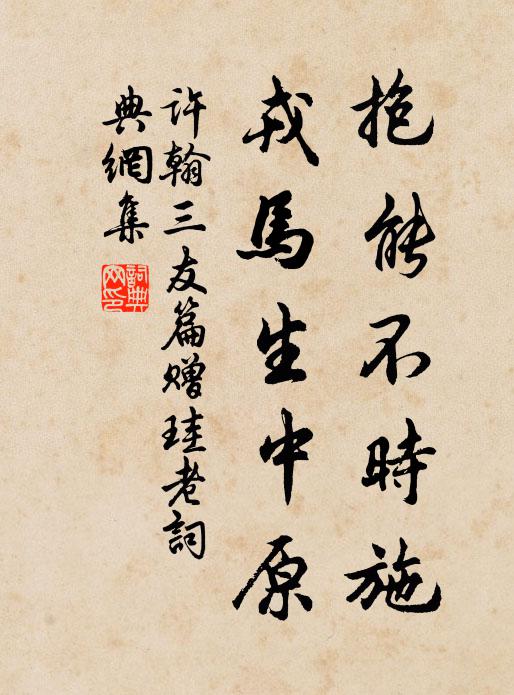 抱能不時施
戎馬生中原
許翰三友篇贈珪老詞
典網集
詞典網印